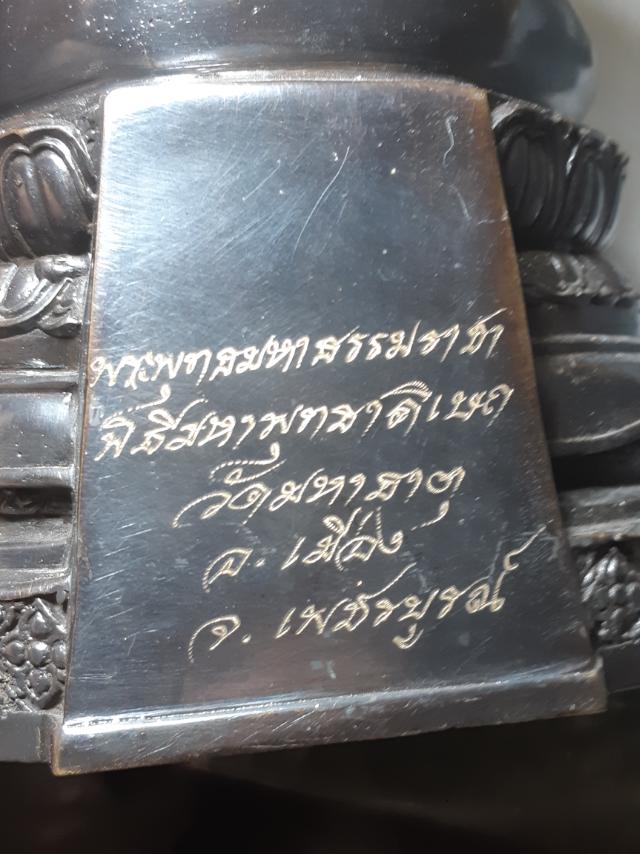 พระพุทธมหาธรรมราชา
พิธีมหาพุทธาภิเษก
วัดมหาธาตุ
อ. เมือง
จ. เพชรบูรณ์